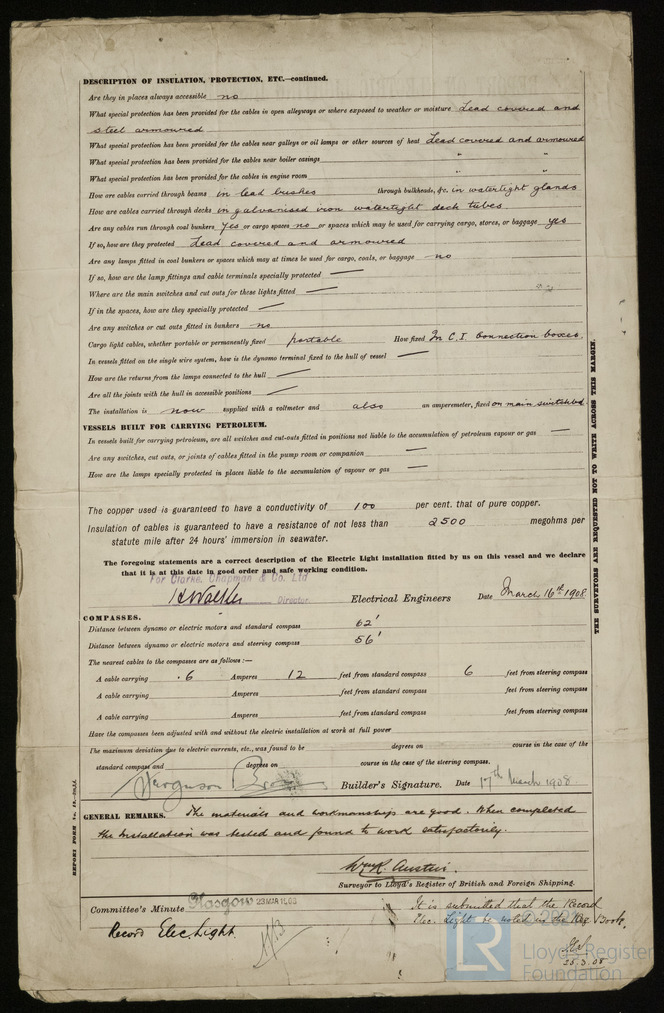 DESCRIPTION OF INSULATION, PROTECTION, ETC.—continued.
Are they in places always accessible no
What special protection has been provided for the cables in open alleyways or where exposed to weather or moisture Lead covered and
steel armoured
What special protection has been provided for the cables near galleys or oil lamps or other sources of heat Lead covered and armoured
What special protection has been provided for the cables near boiler casings " "
What special protection has been provided for the cables in engine room " "
How are cables carried through beams in lead bushes through bulkheads, &c. in watertight glands
How are cables carried through decks in galvanised iron watertight deck tubes
Are any cables run through coal bunkers yes or cargo spaces no or spaces which may be used for carrying cargo, stores, or baggage yes
If so, how are they protected Lead covered and armoured
Are any lamps fitted in coal bunkers or spaces which may at times be used for cargo, coals, or baggage no
If so, how are the lamp fittings and cable terminals specially protected —
Where are the main switches and cut outs for these lights fitted —
If in the spaces, how are they specially protected —
Are any switches or cut outs fitted in bunkers no
Cargo light cables, whether portable or permanently fixed portable How fixed In C.I. connection boxes.
In vessels fitted on the single wire system, how is the dynamo terminal fixed to the hull of vessel —
How are the returns from the lamps connected to the hull —
Are all the joints with the hull in accessible positions —
The installation is now supplied with a voltmeter and also an amperemeter, fixed on main switchbd.
VESSELS BUILT FOR CARRYING PETROLEUM.
In vessels built for carrying petroleum, are all switches and cut-outs fitted in positions not liable to the accumulation of petroleum vapour or gas —
Are any switches, cut outs, or joints of cables fitted in the pump room or companion —
How are the lamps specially protected in places liable to the accumulation of vapour or gas —
The copper used is guaranteed to have a conductivity of 100 per cent. that of pure copper.
Insulation of cables is guaranteed to have a resistance of not less than 2500 megohms per
statute mile after 24 hours' immersion in seawater.
The foregoing statements are a correct description of the Electric Light installation fitted by us on this vessel and we declare
that it is at this date in good order and safe working condition.
For Clarke, Chapman & Co. Ltd
A Walker Director Electrical Engineers Date March 16th 1908
COMPASSES.
Distance between dynamo or electric motors and standard compass 62'
Distance between dynamo or electric motors and steering compass 56'
The nearest cables to the compasses are as follows:—
A cable carrying .6 Amperes 12 feet from standard compass 6 feet from steering compass
A cable carrying Amperes feet from standard compass feet from steering compass
A cable carrying Amperes feet from standard compass feet from steering compass
Have the compasses been adjusted with and without the electric installation at work at full power
The maximum deviation due to electric currents, etc., was found to be degrees on course in the case of the
standard compass and degrees on course in the case of the steering compass.
Ferguson Bros Builder's Signature. Date 17th March 1908
GENERAL REMARKS. The materials and workmanship are good. When completed
the installation was tested and found to work satisfactorily.
Wm R. Austin.
Surveyor to Lloyd's Register of British and Foreign Shipping.
Committee's Minute Glasgow 23 MAR 1908
It is submitted that the Record
Elec. Light be noted in the Reg Book.
Record Elec. Light.
25.3.08
THE SURVEYORS ARE REQUESTED NOT TO WRITE ACROSS THIS MARGIN.
REPORT FORM No.
LR
Lloyd's Register
Foundation